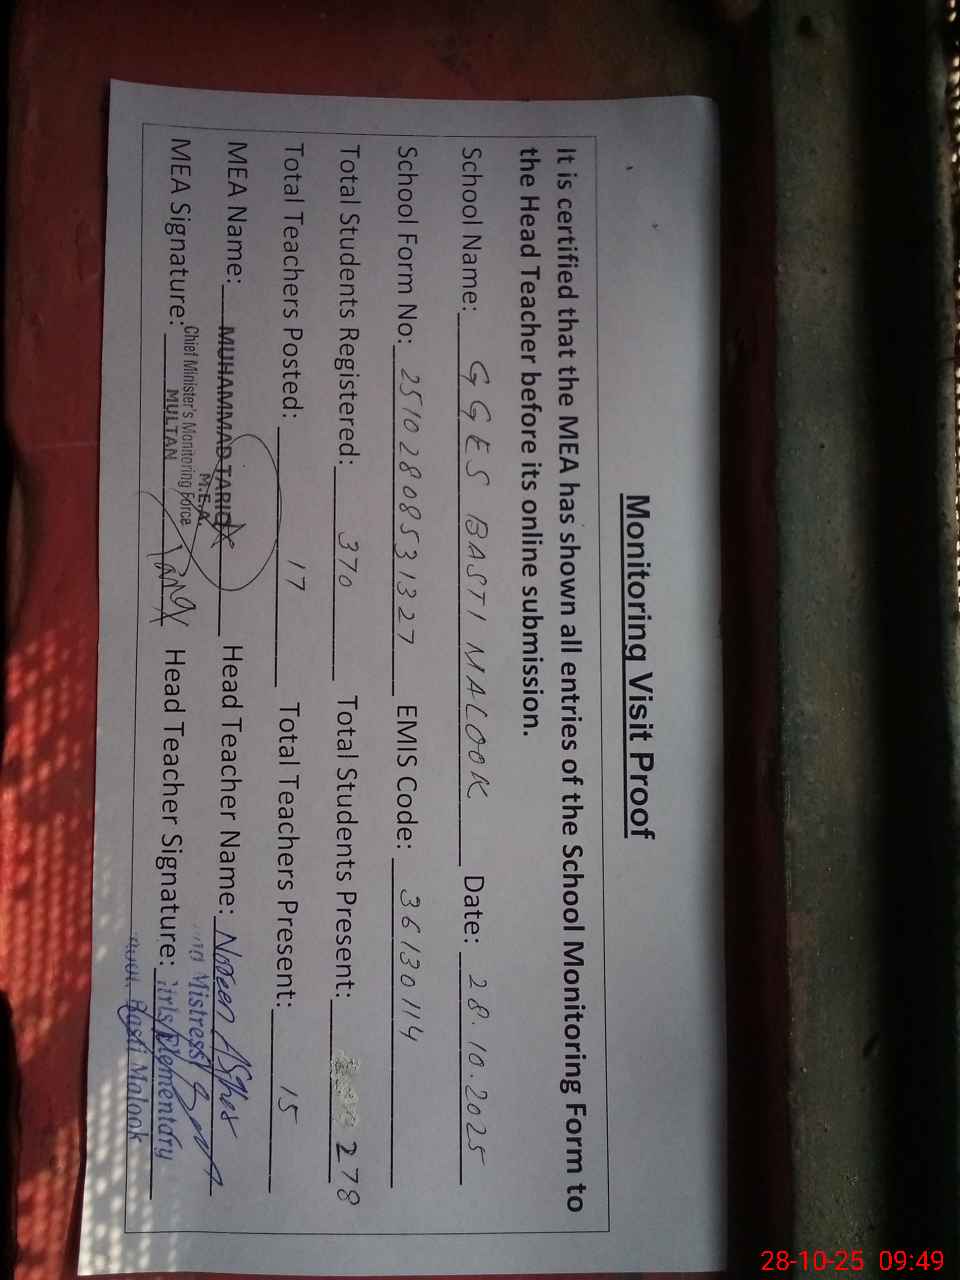 Monitoring Visit Proof
It is certified that the MEA has shown all entries of the School Monitoring Form to
the Head Teacher before its online submission.
School Name: GGES BASTI MALOOK Date: 28.10.2025
School Form No: 25102808531327 EMIS Code: 36130114
Total Students Registered: 370 Total Students Present: 278
Total Teachers Posted: 17 Total Teachers Present: 15
MEA Name: MUHAMMAD TARIQ Head Teacher Name: Noreen Asghar
M.E.A Mistress
Chief Minister's Monitoring Force
MEA Signature: MULTAN Tariq Head Teacher Signature: Girls Elementary
Basti Malook
28-10-25 09:49